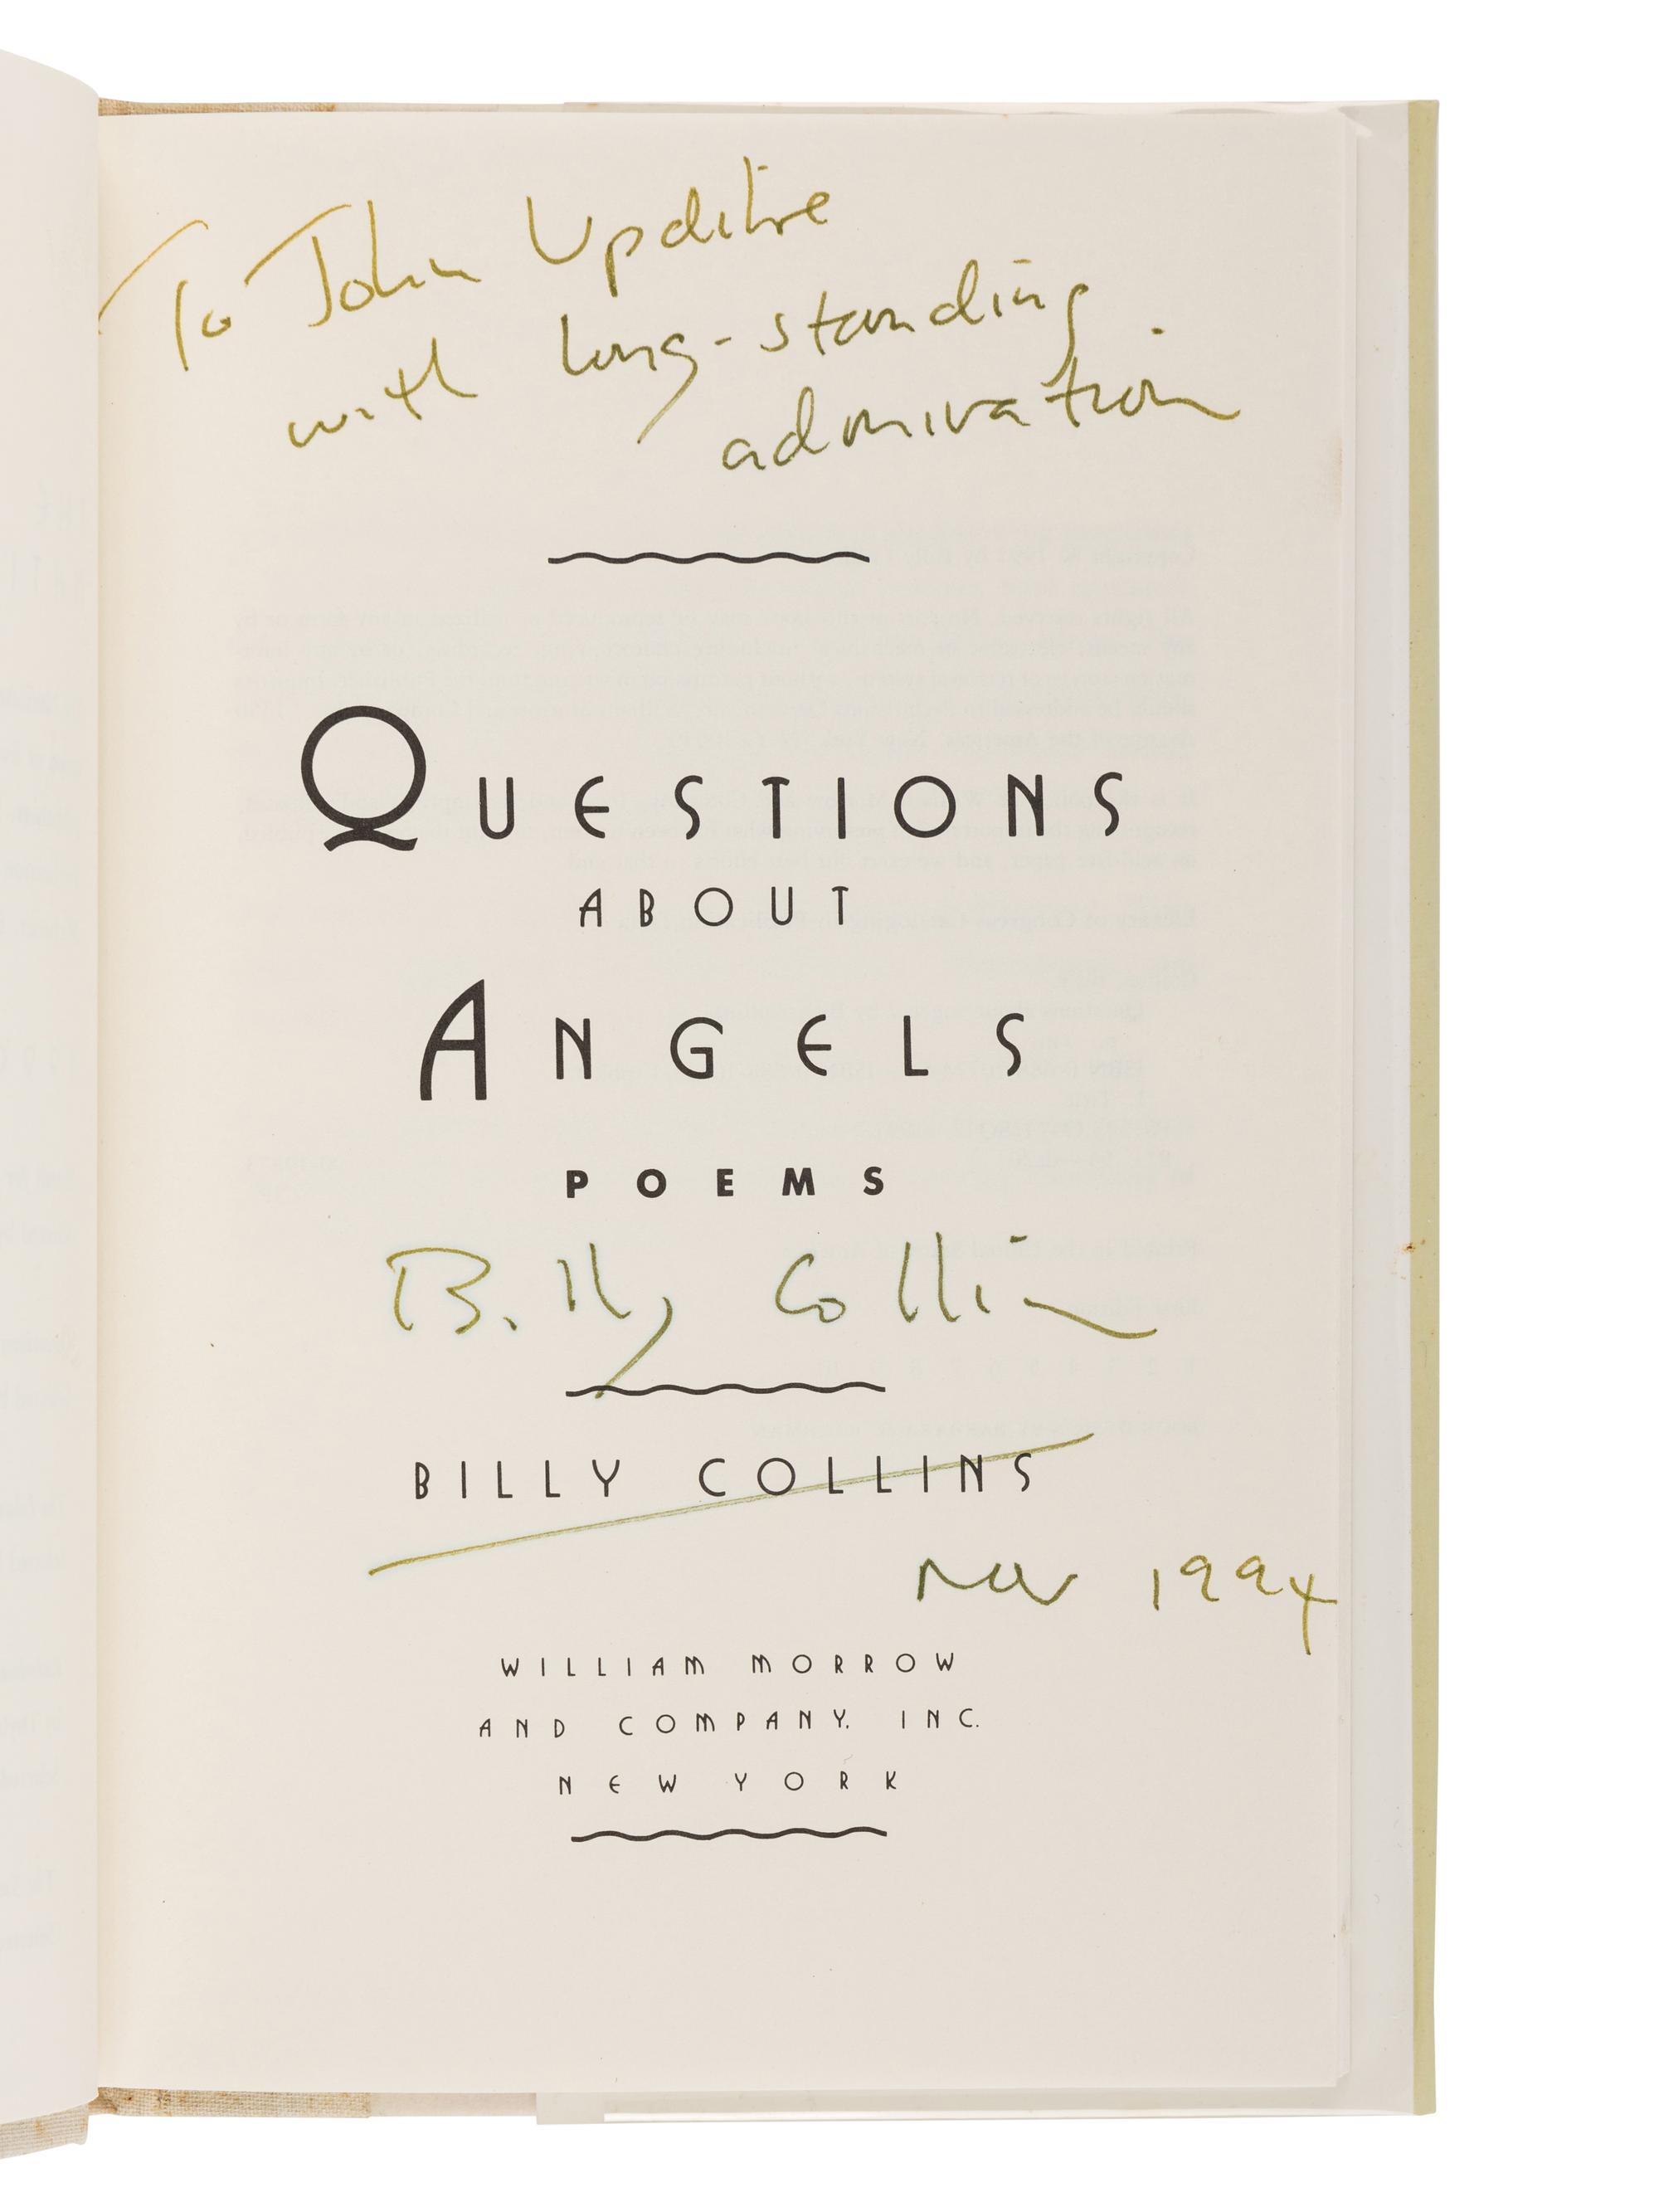 To John Updike
with long-standing
admiration.
QUESTIONS
ABOUT
ANGELS
POEMS
Billy Collins
BILLY COLLINS
Nov 1994
WILLIAM MORROW
AND COMPANY, INC.
NEW YORK